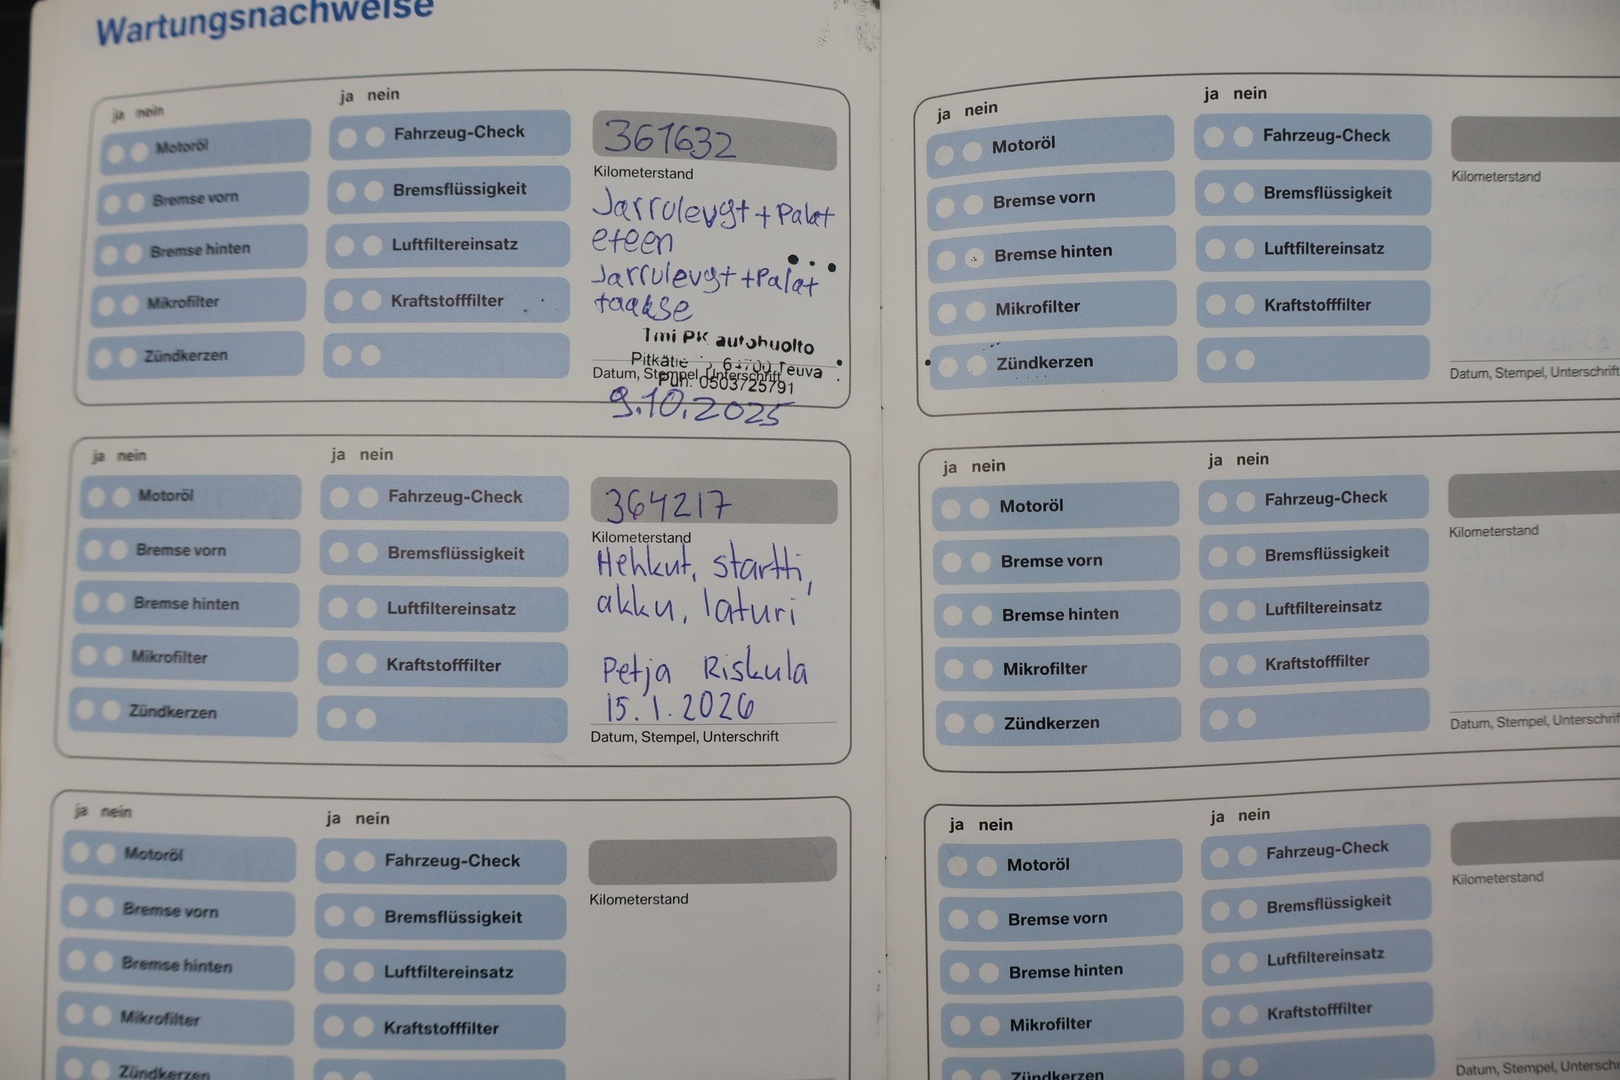 Wartungsnachweise
ja nein
Motoröl
Bremse vorn
Bremse hinten
Mikrofilter
Zündkerzen
ja nein
Fahrzeug-Check
Bremsflüssigkeit
Luftfiltereinsatz
Kraftstofffilter
361632
Kilometerstand
Jarrulevyt + Palat
eteen
Jarrulevyt + Palat
taakse
Tmi PK autohuolto
Teuva
Datum, Stempel, Unterschrift
Puh. 0503725791
9.10.2025
ja nein
Motoröl
Bremse vorn
Bremse hinten
Mikrofilter
Zündkerzen
ja nein
Fahrzeug-Check
Bremsflüssigkeit
Luftfiltereinsatz
Kraftstofffilter
364217
Kilometerstand
Hehkut, startti,
akku, laturi
Petja Riskula
15.1.2026
Datum, Stempel, Unterschrift
ja nein
Motoröl
Bremse vorn
Bremse hinten
Mikrofilter
Zündkerzen
ja nein
Fahrzeug-Check
Bremsflüssigkeit
Luftfiltereinsatz
Kraftstofffilter
Kilometerstand
ja nein
Motoröl
Bremse vorn
Bremse hinten
Mikrofilter
Zündkerzen
ja nein
Fahrzeug-Check
Bremsflüssigkeit
Luftfiltereinsatz
Kraftstofffilter
Kilometerstand
Datum, Stempel, Unterschrift
ja nein
Motoröl
Bremse vorn
Bremse hinten
Mikrofilter
Zündkerzen
ja nein
Fahrzeug-Check
Bremsflüssigkeit
Luftfiltereinsatz
Kraftstofffilter
Kilometerstand
Datum, Stempel, Unterschrift
ja nein
Motoröl
Bremse vorn
Bremse hinten
Mikrofilter
Zündkerzen
ja nein
Fahrzeug-Check
Bremsflüssigkeit
Luftfiltereinsatz
Kraftstofffilter
Kilometerstand
Datum, Stempel, Unterschrift